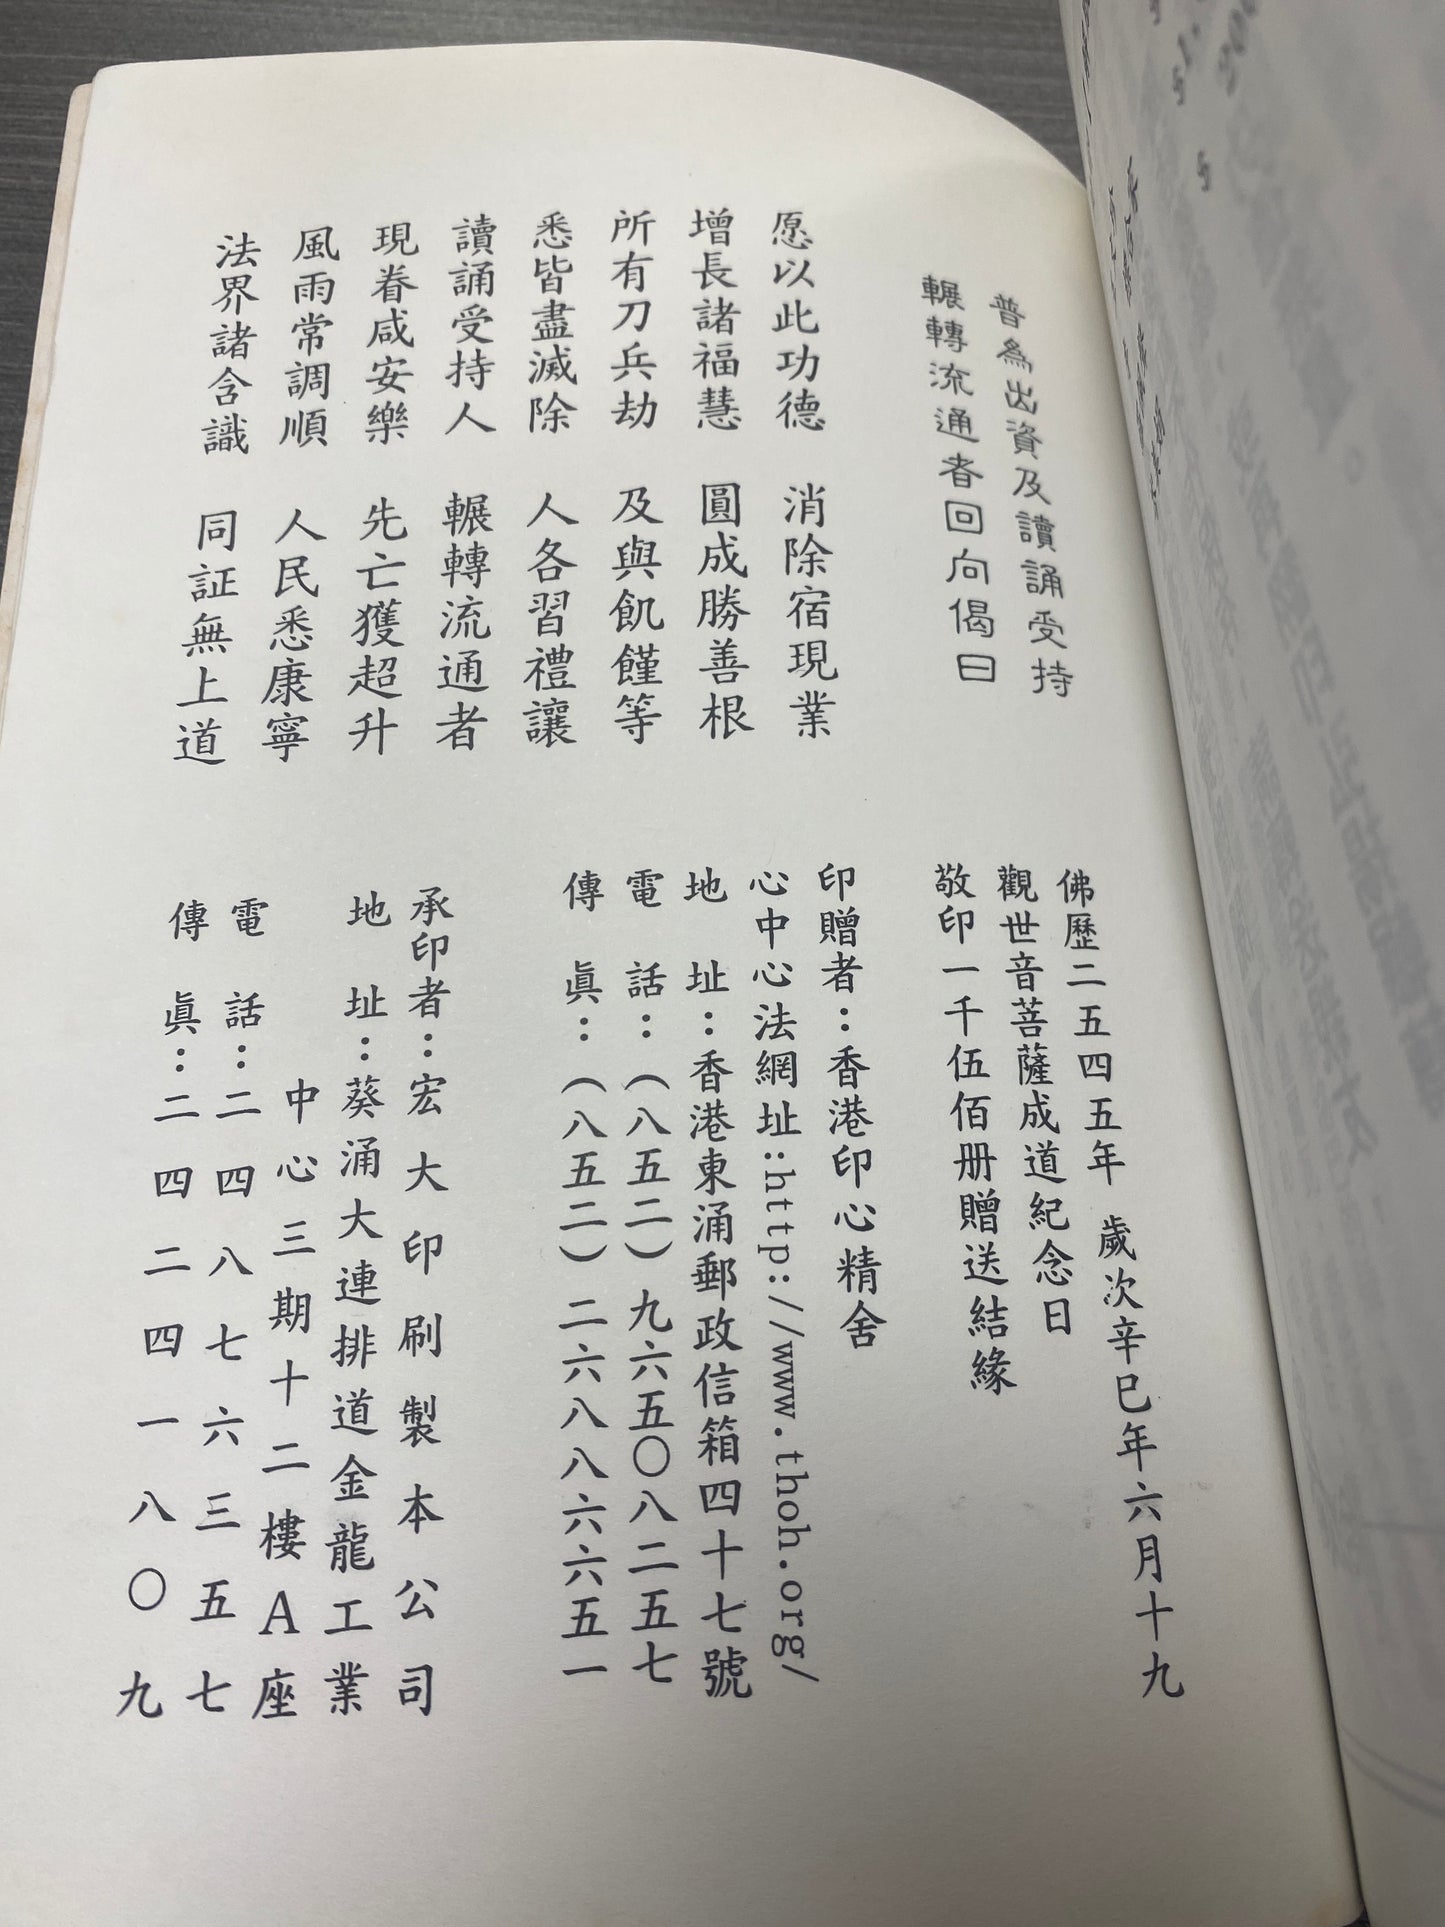 普為出資及讀誦受持
輾轉流通者回向偈曰
愿以此功德 消除宿現業
增長諸福慧 圓成勝善根
所有刀兵劫 及與飢饉等
悉皆盡滅除 人各習禮讓
讀誦受持人 輾轉流通者
現眷咸安樂 先亡獲超升
風雨常調順 人民悉康寧
法界諸含識 同証無上道
佛歷二五四五年 歲次辛巳年六月十九
觀世音菩薩成道紀念日
敬印一千伍佰册贈送結緣
印贈者：香港印心精舍
心中心法網址：http://www.thoh.org/
地 址：香港東涌郵政信箱四十七號
電 話：（八五二）九六五〇八二五七
傳 眞：（八五二）二六八八六六五一
承印者：宏大印刷製本公司
地 址：葵涌大連排道金龍工業
中心三期十二樓A座
電 話：二四八七六三五七
傳 眞：二四二四一八〇九